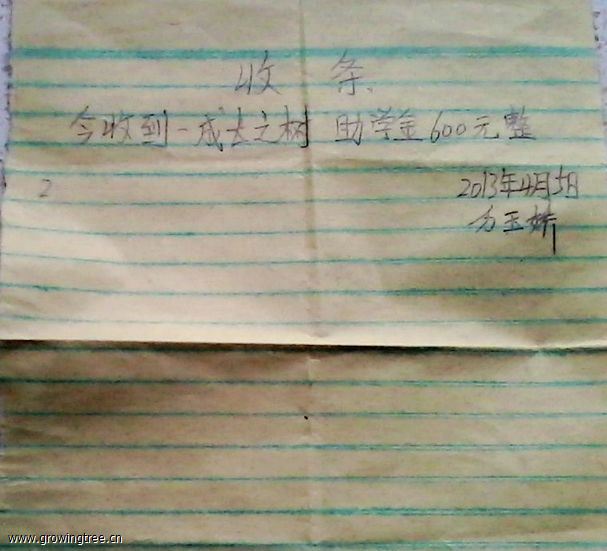 收 条
今收到一成长之树 助学金600元整
2013年4月5日
2
方玉娇
www.growingtree.cn